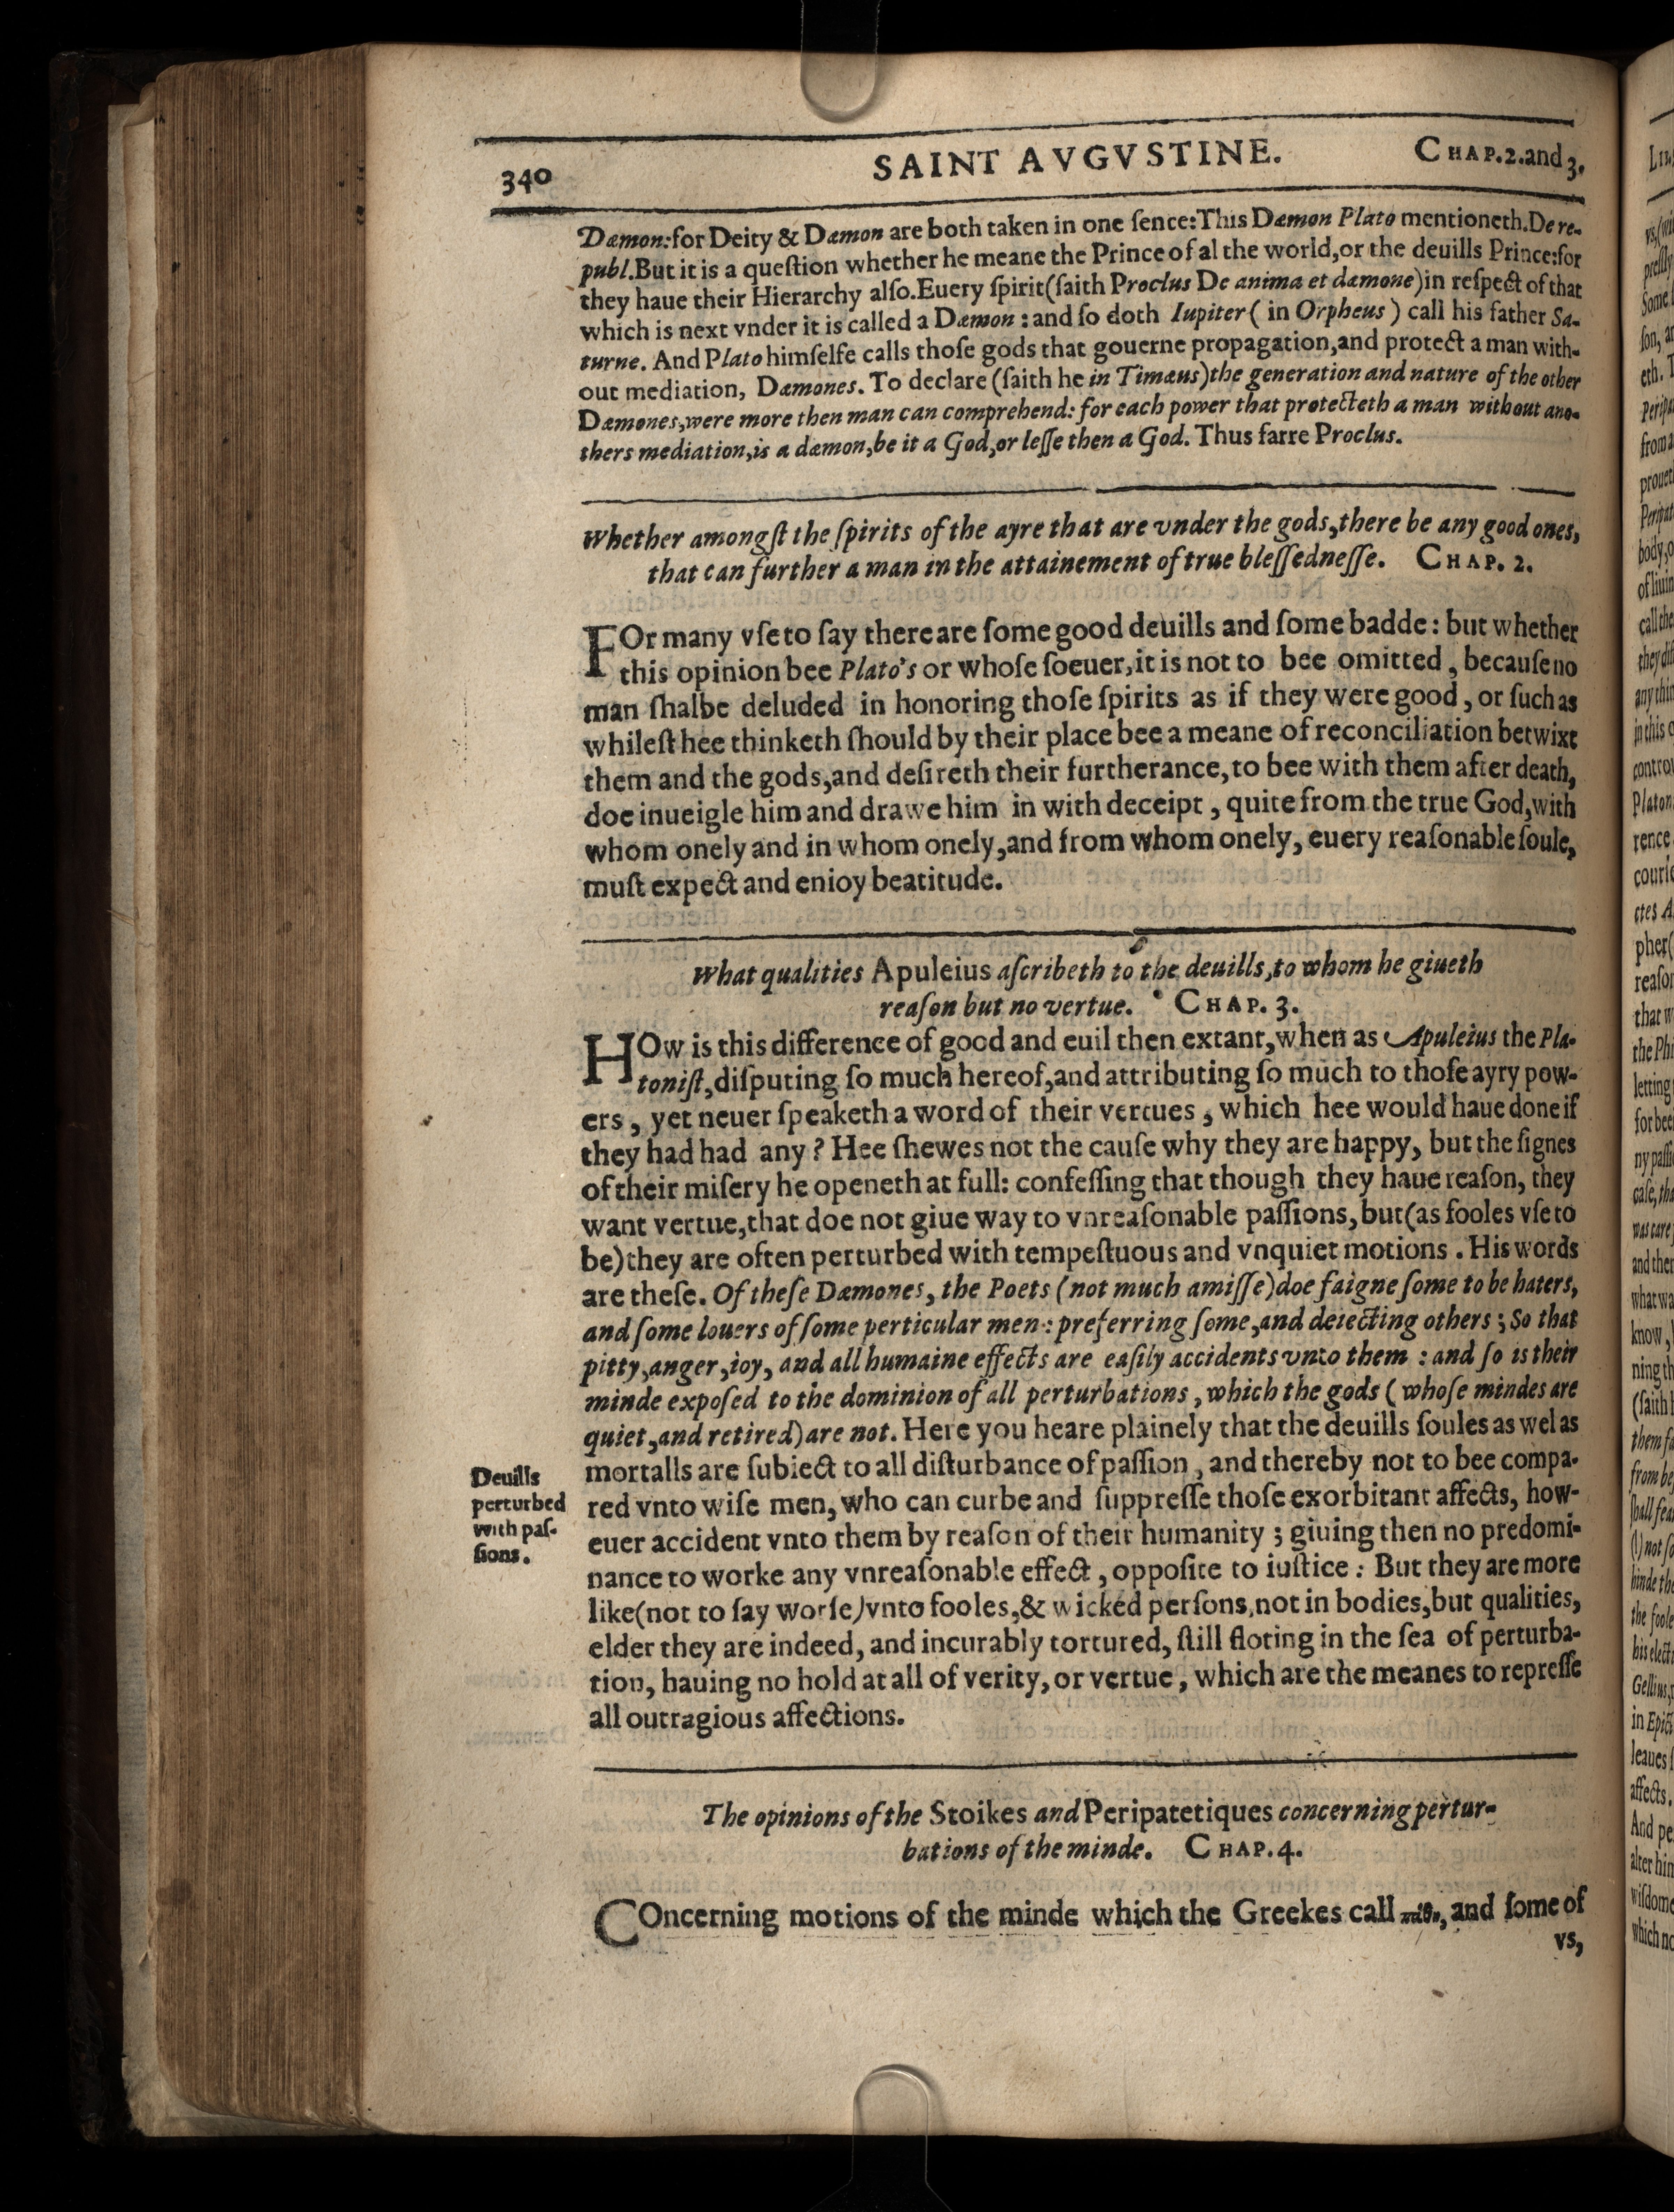 340 SAINT AVGVSTINE. CHAP.2.and 3.
Dæmon:for Deity & Dæmon are both taken in one ſence:This Dæmon Plato mentioneth.De re-
publ.But it is a queſtion whether he meane the Prince of al the world,or the deuills Prince:for
they haue their Hierarchy alſo.Euery ſpirit(ſaith Proclus De anima et dæmone)in reſpect of that
which is next vnder it is called a Dæmon : and ſo doth Iupiter ( in Orpheus ) call his father Sa-
turne. And Plato himſelfe calls thoſe gods that gouerne propagation,and protect a man with-
out mediation, Dæmones. To declare (ſaith he in Timæus)the generation and nature of the other
Dæmones,were more then man can comprehend: for each power that protecteth a man without ano-
thers mediation,is a dæmon,be it a God,or leſſe then a God. Thus farre Proclus.
Whether amongſt the ſpirits of the ayre that are vnder the gods,there be any good ones,
that can further a man in the attainement of true bleſſedneſſe. CHAP. 2.
FOr many vſe to ſay there are ſome good deuills and ſome badde : but whether
this opinion bee Plato's or whoſe ſoeuer,it is not to bee omitted , becauſe no
man ſhalbe deluded in honoring thoſe ſpirits as if they were good , or ſuch as
whileſt hee thinketh ſhould by their place bee a meane of reconciliation betwixt
them and the gods,and deſireth their furtherance,to bee with them after death,
doe inueigle him and drawe him in with deceipt , quite from the true God,with
whom onely and in whom onely,and from whom onely, euery reaſonable ſoule,
muſt expect and enioy beatitude.
What qualities Apuleius aſcribeth to the deuills,to whom he giueth
reaſon but no vertue. CHAP. 3.
HOw is this difference of good and euil then extant,when as Apuleius the Pla-
toniſt,diſputing ſo much hereof,and attributing ſo much to thoſe ayry pow-
ers , yet neuer ſpeaketh a word of their vertues , which hee would haue done if
they had had any ? Hee ſhewes not the cauſe why they are happy, but the ſignes
of their miſery he openeth at full: confeſſing that though they haue reaſon, they
want vertue,that doe not giue way to vnreaſonable paſſions,but(as fooles vſe to
be)they are often perturbed with tempeſtuous and vnquiet motions . His words
are theſe. Of theſe Dæmones, the Poets (not much amiſſe)doe faigne ſome to be haters,
and ſome louers of ſome perticular men : preferring ſome,and deiecting others ; So that
pitty,anger,ioy, and all humaine effects are eaſily accidents vnto them : and ſo is their
minde expoſed to the dominion of all perturbations , which the gods ( whoſe mindes are
quiet,and retired)are not. Here you heare plainely that the deuills ſoules as wel as
mortalls are ſubiect to all diſturbance of paſſion , and thereby not to bee compa-
red vnto wiſe men, who can curbe and ſuppreſſe thoſe exorbitant affects, how-
euer accident vnto them by reaſon of their humanity ; giuing then no predomi-
nance to worke any vnreaſonable effect , oppoſite to iuſtice : But they are more
like(not to ſay worſe)vnto fooles,& wicked perſons,not in bodies,but qualities,
elder they are indeed, and incurably tortured, ſtill floting in the ſea of perturba-
tion, hauing no hold at all of verity, or vertue , which are the meanes to repreſſe
all outragious affections.
Deuills
perturbed
with paſ-
ſions.
The opinions of the Stoikes and Peripatetiques concerning pertur-
bations of the minde. CHAP.4.
COncerning motions of the minde which the Greekes call πάθη, and ſome of
vs,